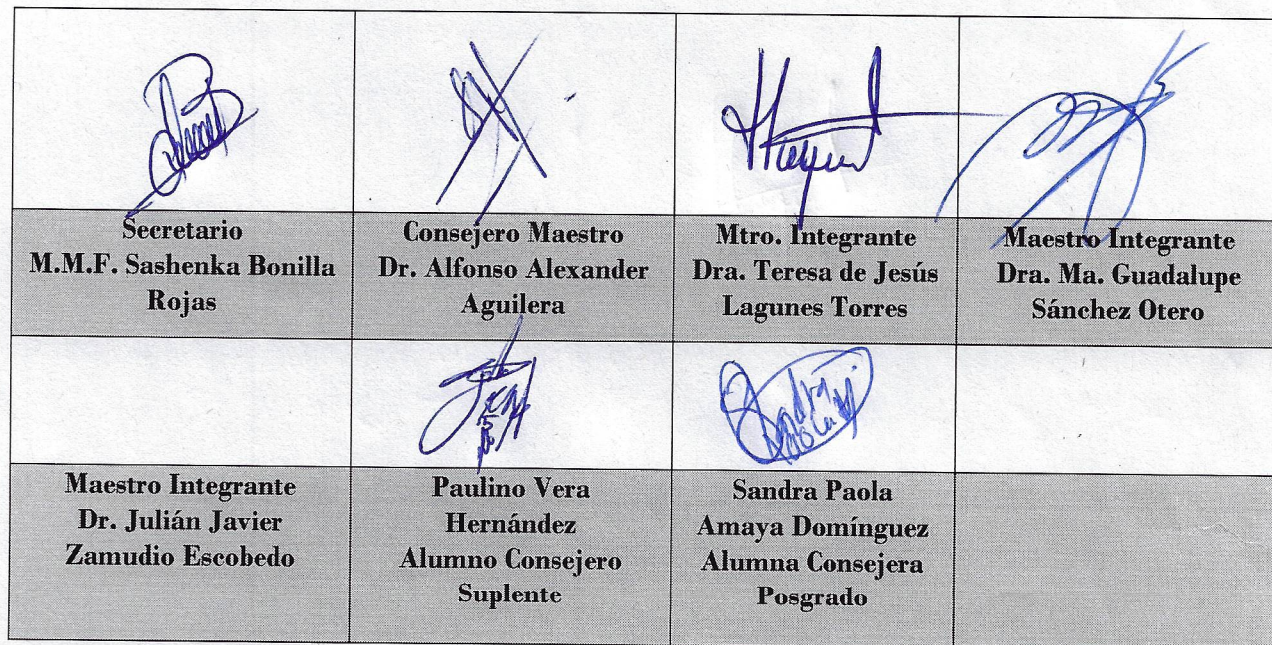 Secretario
M.M.F. Sashenka Bonilla
Rojas
Consejero Maestro
Dr. Alfonso Alexander
Aguilera
Mtro. Integrante
Dra. Teresa de Jesús
Lagunes Torres
Maestro Integrante
Dra. Ma. Guadalupe
Sánchez Otero
Maestro Integrante
Dr. Julián Javier
Zamudio Escobedo
Paulino Vera
Hernández
Alumno Consejero
Suplente
Sandra Paola
Amaya Domínguez
Alumna Consejera
Posgrado